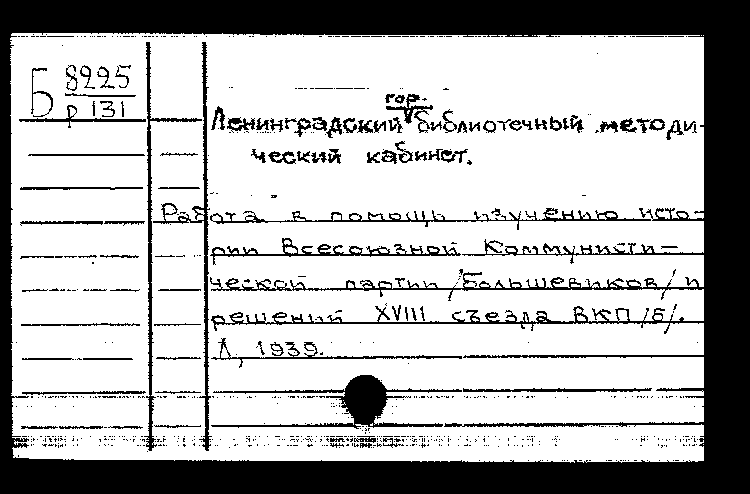 Б 8225
р 131
гор.
Ленинградский библиотечный методи-
ческий кабинет.
Работа в помощь изучению исто-
рии Всесоюзной Коммунисти-
ческой партии /большевиков/ и
решений XVIII съезда ВКП /б/.
Л, 1939.